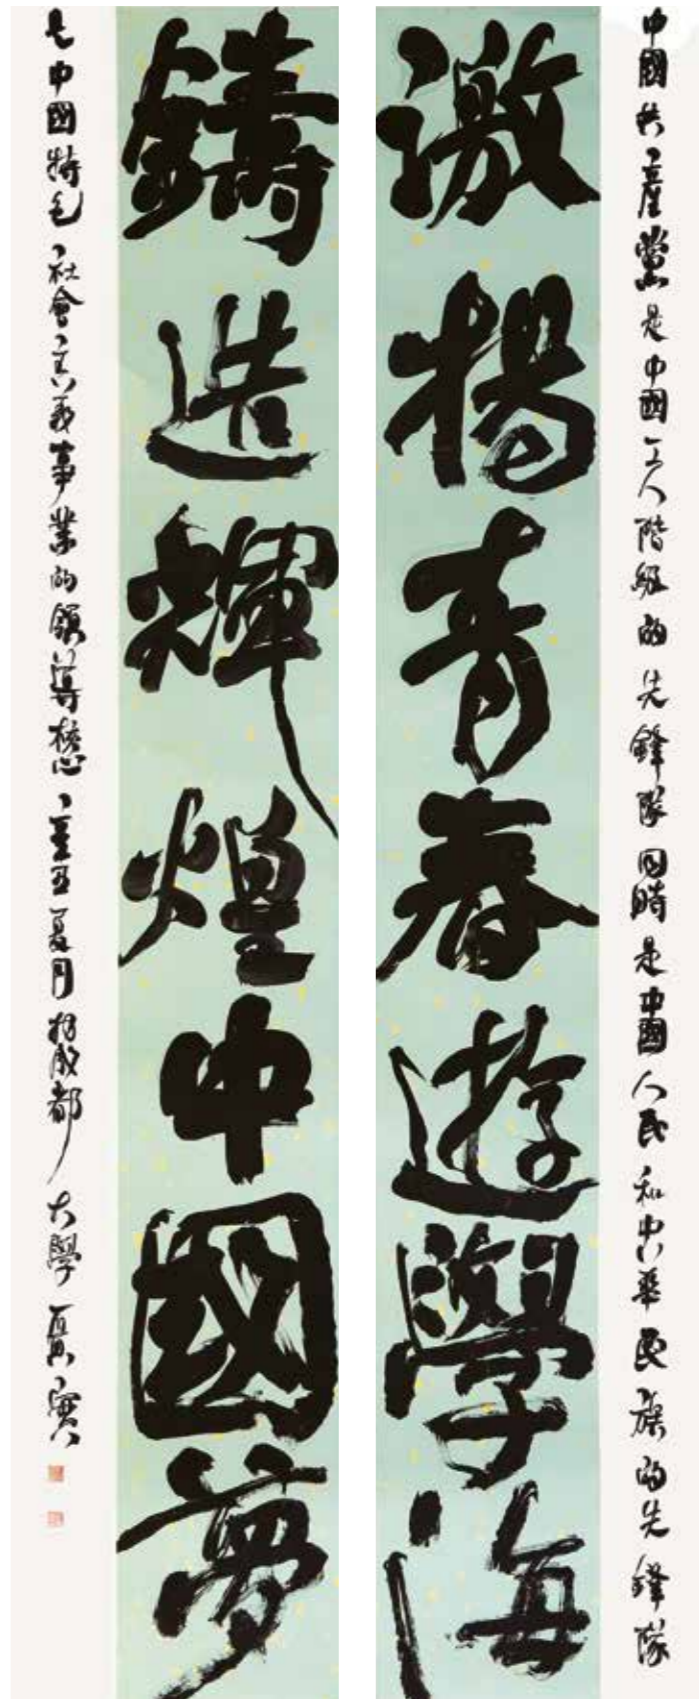 中國共產黨是中國工人階級的先鋒隊同時是中國人民和中華民族的先鋒隊
激揚青春遊學海
鑄造輝煌中國夢
是中國特色社會主義事業的領導核心辛丑夏月於成都大學